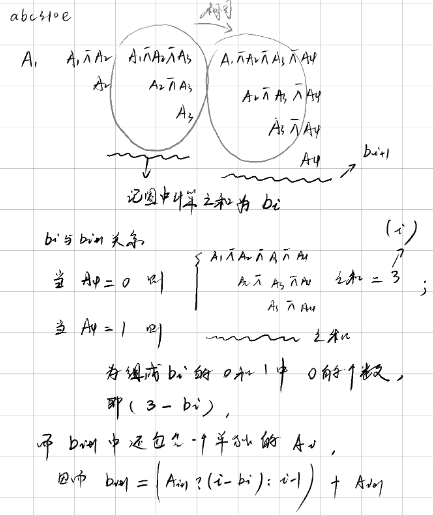 abc310e
相同
A₁ A₁⊼A₂ A₁⊼A₂⊼A₃ A₁⊼A₂⊼A₃⊼A₄
A₂ A₂⊼A₃ A₂⊼A₃⊼A₄
A₃ A₃⊼A₄
A₄ bᵢ₊₁
记圈中计算之和为 bᵢ
bᵢ与bᵢ₊₁关系 (i)
当 A₄=0 则 { A₁⊼A₂⊼A₃⊼A₄
A₂⊼A₃⊼A₄ 之和 = 3 ;
A₃⊼A₄
当 A₄=1 则 之和
为组成bᵢ的0和1中0的个数,
即(3-bᵢ),
而bᵢ₊₁中还包含一个单独的Aᵢ,
因而 bᵢ₊₁ = (Aᵢ₊₁?(i-bᵢ):i) + Aᵢ₊₁